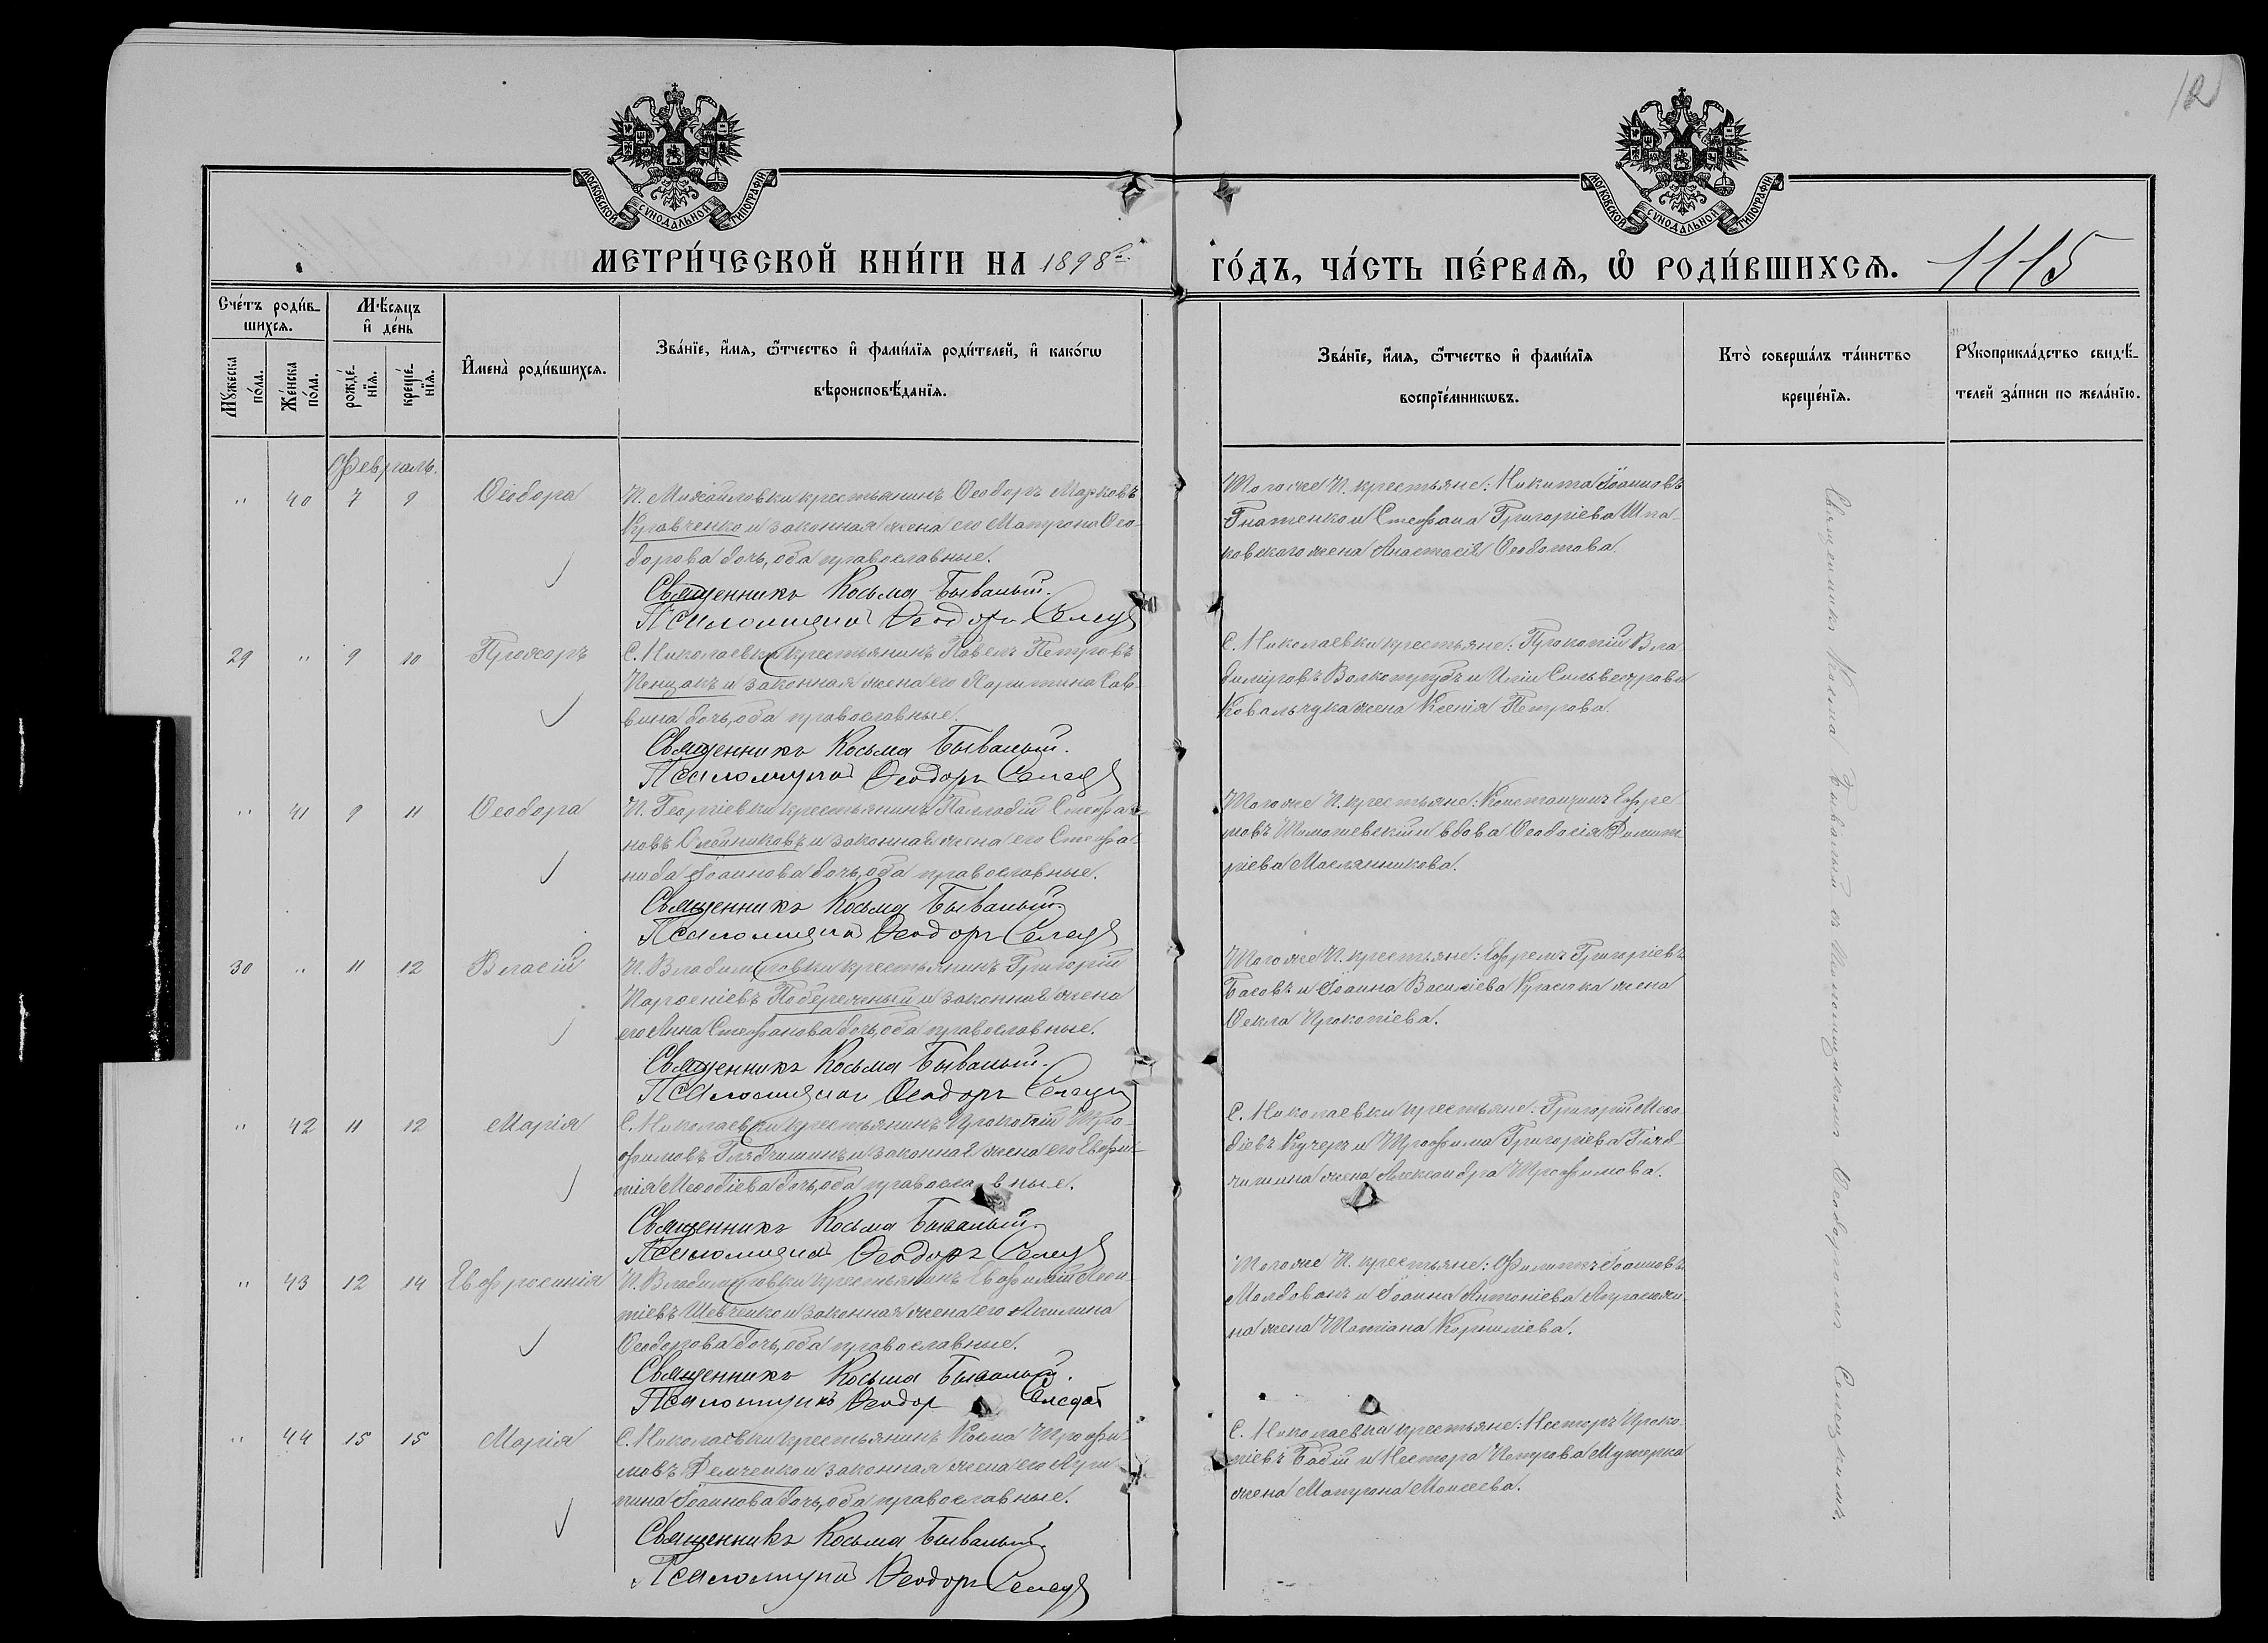 12
МОСКОВСКОЙ СѴНОДАЛЬНОЙ ТИПОГРАФІИ
МОСКОВСКОЙ СѴНОДАЛЬНОЙ ТИПОГРАФІИ
МЕТРИ́ЧЕСКОЙ КНИ́ГИ НА 1898 й.
ГО́ДЪ, ЧА́СТЬ ПЕ́РВАѦ, Ѽ РОДИ́ВШИХСѦ. 1115
Сче́тъ роди́в-
шихсѧ.
Мѣ́сѧцъ
и҆ де́нь
Мꙋ́жеска по́ла.
Же́нска по́ла.
рожде́-нїѧ.
креще́-нїѧ.
И҆мена̀ роди́вшихсѧ.
Зва́нїе, и҆́мѧ, ѻ҆́тчество и҆ фами́лїѧ роди́телей, и҆ како́гѡ
вѣроисповѣ́данїѧ.
Зва́нїе, и҆́мѧ, ѻ҆́тчество и҆ фами́лїѧ
воспрїе́мникѡвъ.
Кто̀ соверша́лъ та́инство
креще́нїѧ.
Рꙋкоприкла́дство свидѣ́-
телей за́писи по жела́нїю.
Февраль.
" 40 7 9 Ѳеодора П. Михайловки крестьянинъ Ѳеодоръ Марковъ
Кравченко и законная жена его Матрона Ѳео-
дорова дочь, оба православные.
Священникъ Косьма Бывалый.
Псаломщикъ Ѳеодоръ
Тогоже П. крестьяне: Никита Іоанновъ
Гнатенко и Стефана Григоріева Шпа-
ковского жена Анастасія Ѳеодотова.
29 " 9 10 Прохоръ С. Николаевки крестьянинъ Павелъ Петровъ
и законная жена его Харитина Сав-
вина дочь, оба православные.
Священникъ Косьма Бывалый.
Псаломщикъ Ѳеодоръ
С. Николаевки крестьяне: Прокопій Вла-
диміровъ Волкотрубъ и Иліи Сильвестрова
Ковальчука жена Ксенія Петрова.
" 41 9 11 Ѳеодора П. Георгіевки крестьянинъ Палладій Стефа-
новъ Олейниковъ и законная жена его Стефа-
нида Іоаннова дочь, оба православные.
Священникъ Косьма Бывалый.
Псаломщикъ Ѳеодоръ
Тогоже П. крестьяне: Константинъ Ефре-
мовъ Томашевскій и вдова Ѳеодосія Димит-
ріева Маслянникова.
30 " 11 12 Власій П. Владиміровки крестьянинъ Григорій
Парѳеніевъ Побережный и законная жена
его Анна Стефанова дочь, оба православные.
Священникъ Косьма Бывалый.
Псаломщикъ Ѳеодоръ
Тогоже П. крестьяне: Ефремъ Григоріевъ
Басовъ и Іоанна Василіева жена
Ѳекла Прокопіева.
" 42 11 12 Марія С. Николаевки крестьянинъ Прокопій Тро-
фимовъ и законная жена его Евфи-
мія Меѳодіева дочь, оба православные.
Священникъ Косьма Бывалый.
Псаломщикъ Ѳеодоръ
С. Николаевки крестьяне: Григорій Меѳо-
діевъ Кучеръ и Трофима Григоріева
жена Александра Трофимова.
" 43 12 14 Евфросинія П. Владиміровки крестьянинъ Евфимій Леон-
тіевъ Шевченко и законная жена его Акилина
Ѳеодорова дочь, оба православные.
Священникъ Косьма Бывалый.
Псаломщикъ Ѳеодор
Тогоже П. крестьяне: Филиппъ Іоанновъ
Молдованъ и Іоанна Антоніева
жена Татіана Корниліева.
" 44 15 15 Марія С. Николаевки крестьянинъ Косма Трофи-
мовъ Демченко и законная жена его Агри-
пина Іоаннова дочь, оба православные.
Священникъ Косьма Бывалый.
Псаломщикъ Ѳеодоръ
С. Николаевки крестьяне: Несторъ Проко-
піевъ Бабій и Нестора Петрова
жена Матрона Моисеева.
Священникъ Косма Бывалый съ Псаломщикомъ Ѳеодоромъ Селецкимъ.